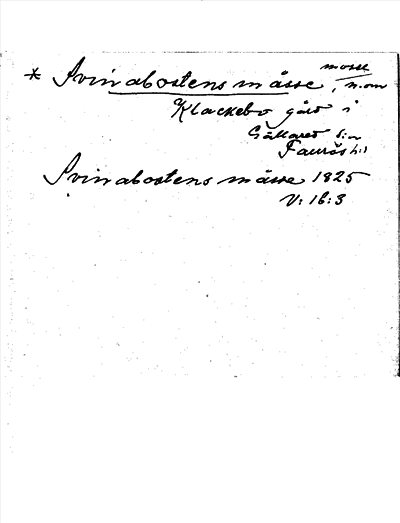 * Svinabostens måsse, mosse n.om
Klackebo gård i
Gällared s:n
Faurås h:d
Svinabostens måsse 1825
V: 16:3